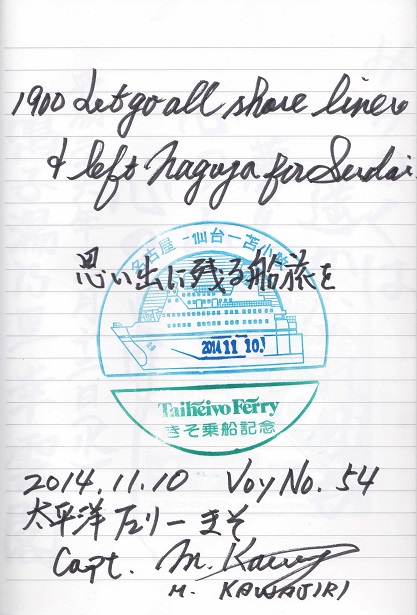 1900 Let go all shore lines
& left Nagoya for Sendai.
名古屋-仙台-苫小牧
思い出に残る船旅を
2014.11.10.
Taiheiyo Ferry
きそ乗船記念
2014.11.10 Voy No. 54
太平洋フェリー きそ
Capt. M. Kawajiri
M. KAWAJIRI